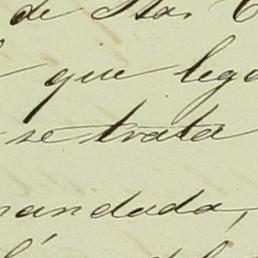 de Sta.
que lega
se trata
mandada,